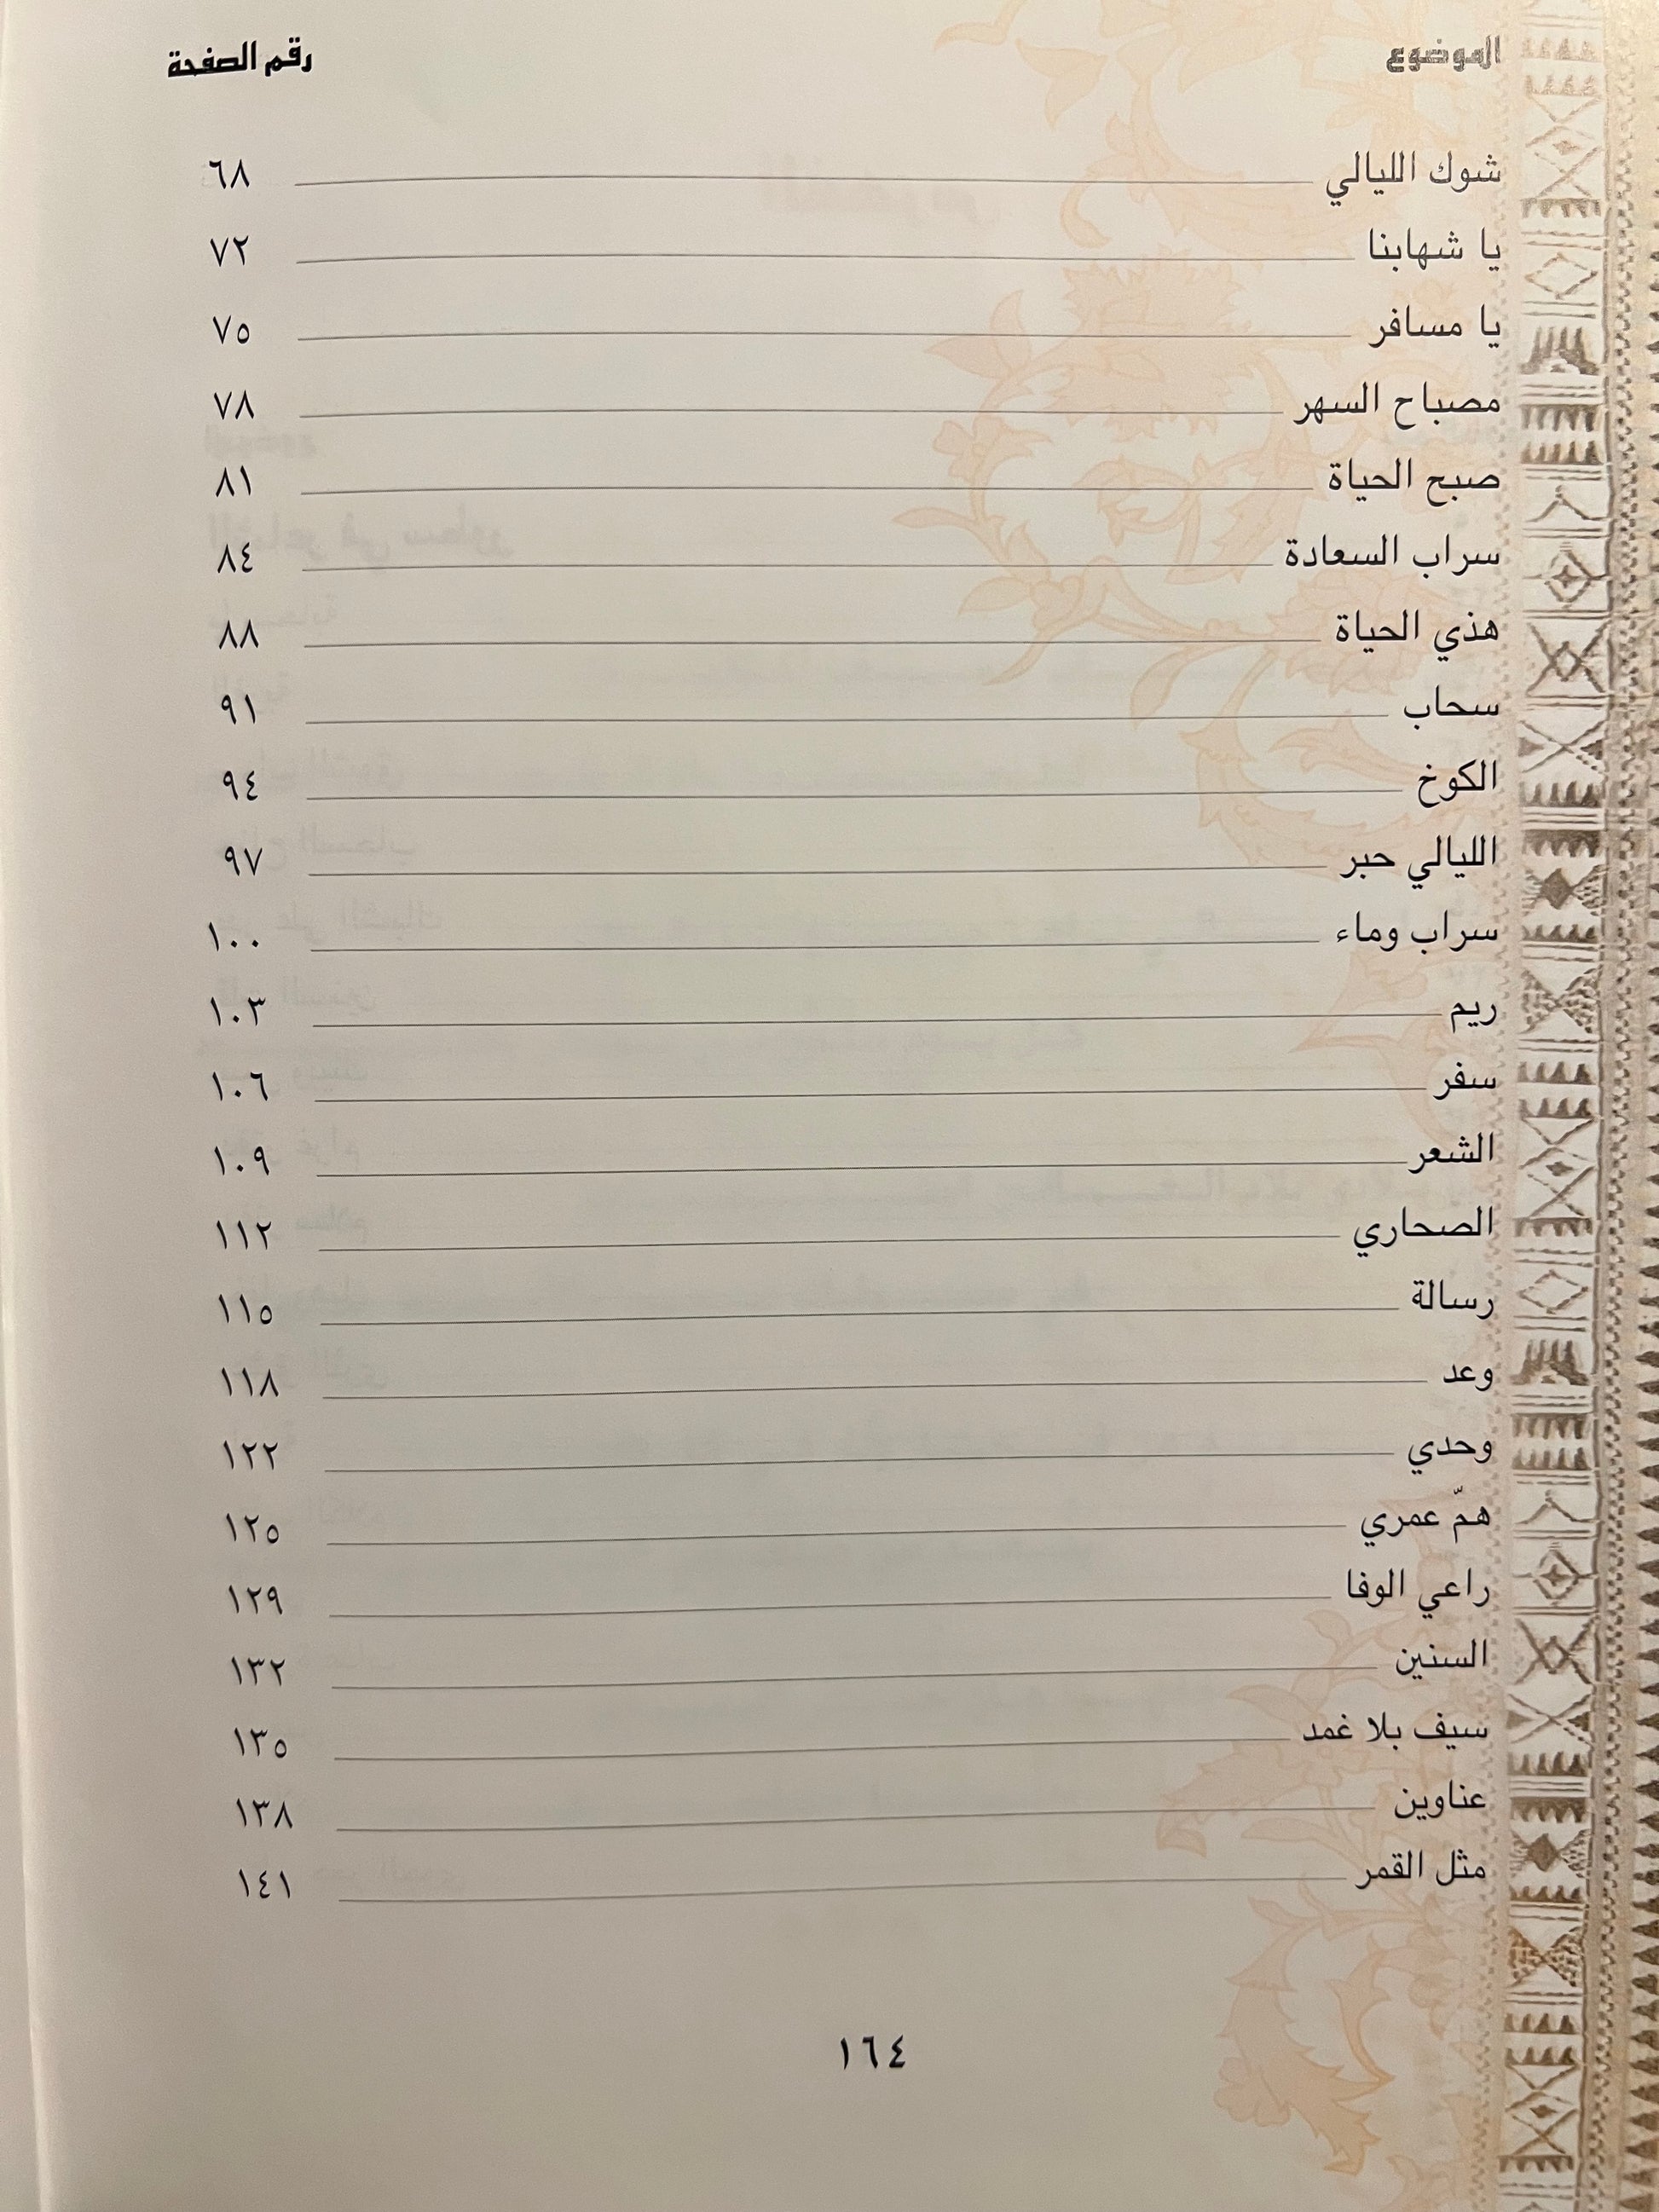 الموضوع رقم الصفحة
شوك الليالي ٦٨
يا شهابنا ٧٢
يا مسافر ٧٥
مصباح السهر ٧٨
صبح الحياة ٨١
سراب السعادة ٨٤
هذي الحياة ٨٨
سحاب ٩١
الكوخ ٩٤
الليالي حبر ٩٧
سراب وماء ١٠٠
ريم ١٠٣
سفر ١٠٦
الشعر ١٠٩
الصحاري ١١٢
رسالة ١١٥
وعد ١١٨
وحدي ١٢٢
همّ عمري ١٢٥
راعي الوفا ١٢٩
السنين ١٣٢
سيف بلا غمد ١٣٥
عناوين ١٣٨
مثل القمر ١٤١
١٦٤